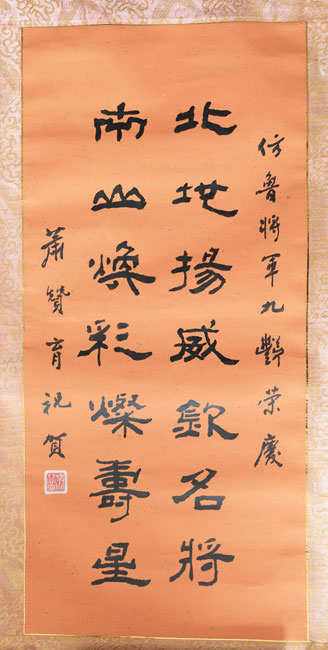 仿魯將軍九豑榮慶
北地揚威欽名將
南山煥彩燦壽星
蕭贊育祝賀